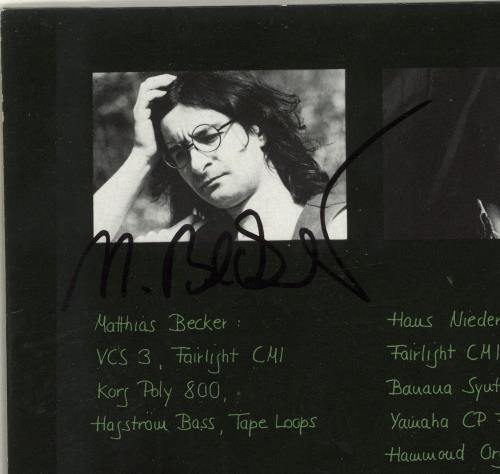 M. Becker
Matthias Becker:
VCS 3, Fairlight CMI
Korg Poly 800,
Hagström Bass, Tape Loops
Haus Nieder
Fairlight CMI
Banana Synt
Yamaha CP 7
Hammond Or